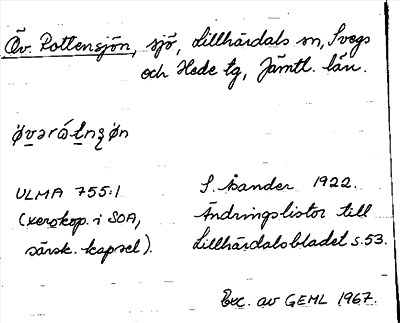 Öv. Rottensjön, sjö, Lillhärdals sn, Svegs
och Hede tg, Jämtl. län.
ULMA 755:1
(xerokop. i SOA,
särsk. kapsel).
S. Isander 1922.
Ändringslistor till
Lillhärdalsbladet s. 53.
Exc. av GEML 1967.